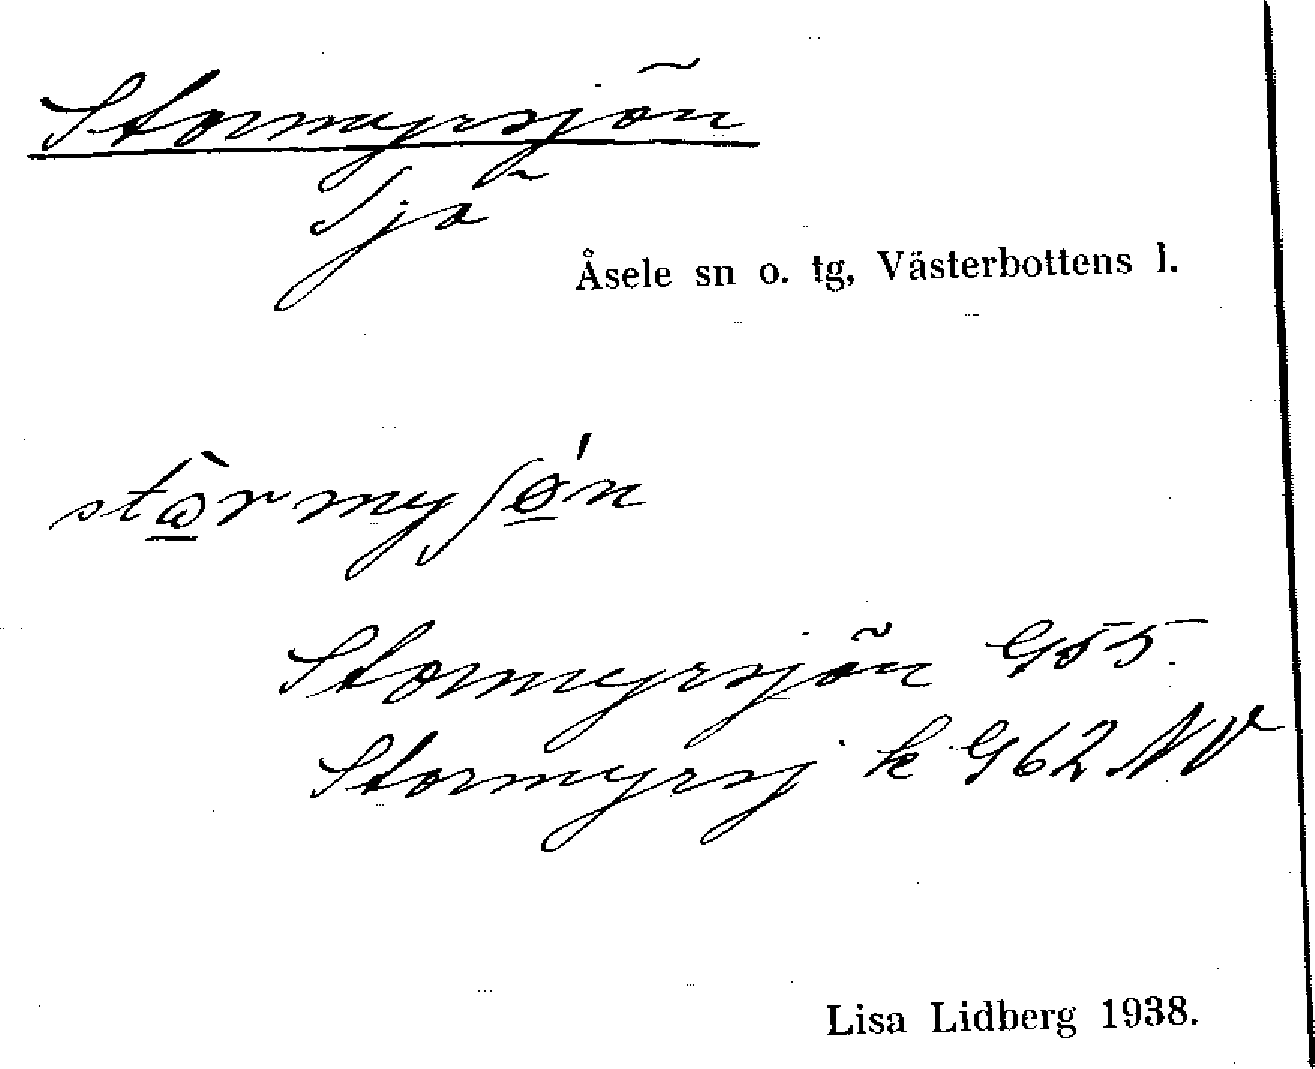 Stormyrsjön
Sjö
Åsele sn o. tg, Västerbottens l.
stɷ̀rmyʃǿn
Stormyrsjön G55.
Stormyrsj k G62 NV
Lisa Lidberg 1938.